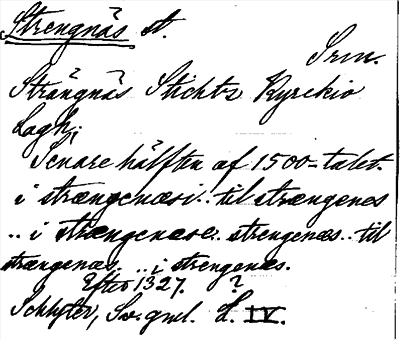 Strengnäs st.
Srm.
Strängnäs Stichts Kyrckio
Lagh;
Senare hälften af 1500-talet.
i strængenæsi .. til strængenes
.. i strængenæse .. strengenæs .. til
strængenæs .. i strengenæs.
Efter 1327. ?
Schlyter, Sv. gml. L. IV.